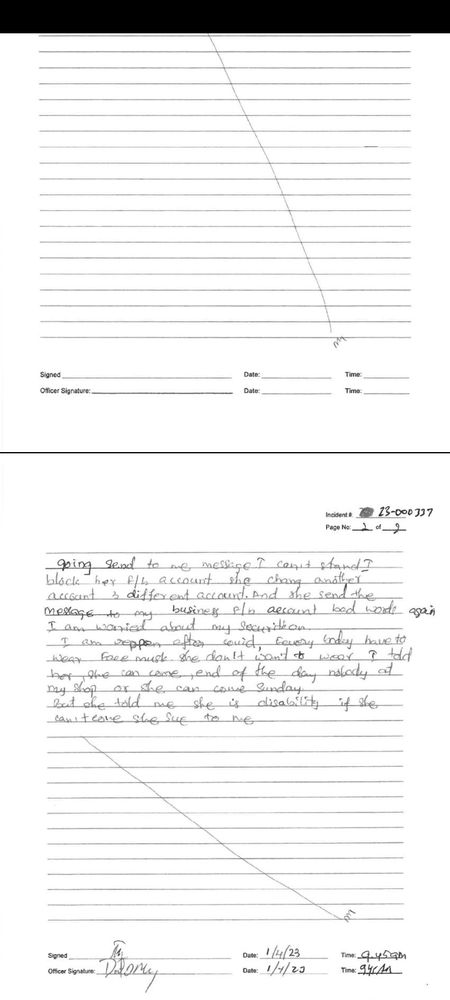 Signed Date: Time:
Officer Signature: Date: Time:
Incident #: 23-000337
Page No: 2 of 2
going send to me message I can't stand I
block her F/b account she chang another
account 3 different account. And she send the
message to my business F/b account bad words again
I am worried about my
I am after covid, Every body have to
wear Face mask she don't want to wear I told
her, she can come, end of the day nobody at
my shop or she can come Sunday
But she told me she is disability if she
can't come she sue to me
Signed Date: 1/4/23 Time: 9.45am
Officer Signature: Date: Time: